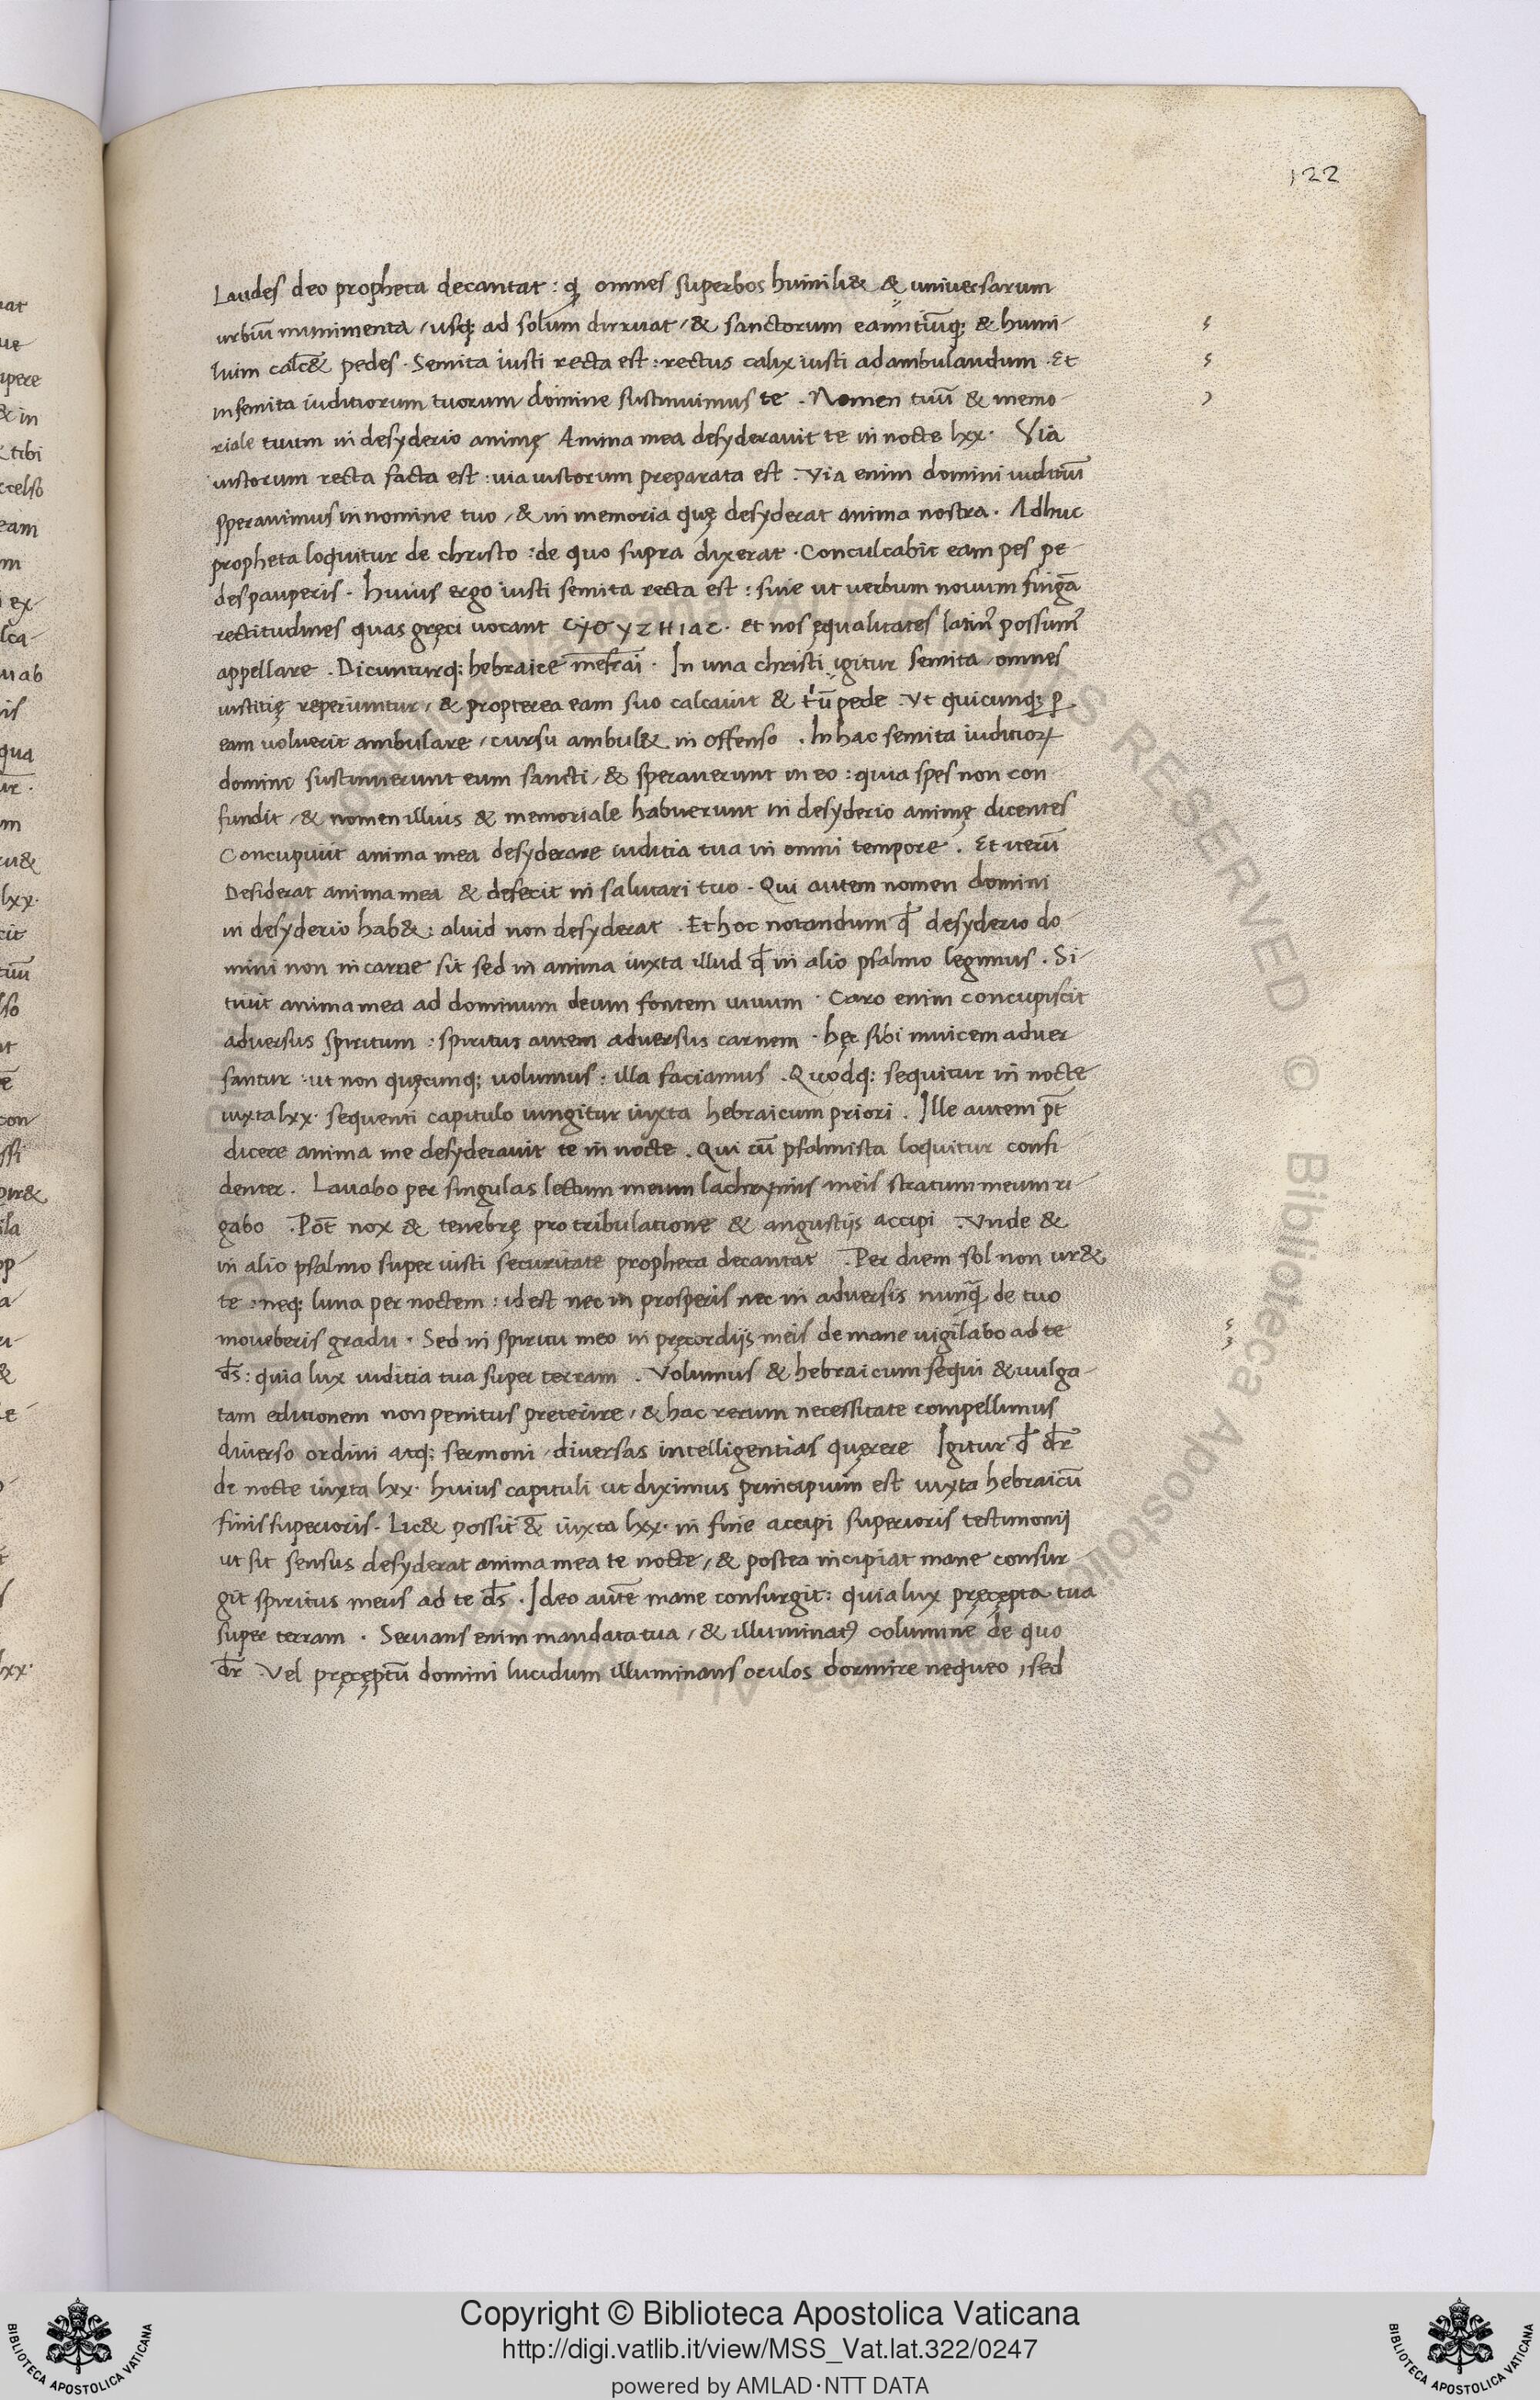 122
Laudes deo propheta decantat : qͥ omnes superbos humili& & universarum
urbiū munimenta / usq; ad solum dirruat / & sanctorum eam tiūq; & humi-
lium calc& pedes . Semita iusti recta est : rectus calix iusti ad ambulandum . Et
in semita iuditiorum tuorum domine sustinuimus te . Nomen tuū & memo-
riale tuum in desyderio animę Anima mea desyderavit te in nocte lxx . Via
iustorum recta facta est : via iustorum preparata est . Via enim domini iuditiū
speravimus in nomine tuo / & in memoria quę desyderat anima nostra . Adhuc
propheta loquitur de christo : de quo supra dixerat . Conculcabit eam pes pe-
des pauperis . huius ergo iusti semita recta est : sive ut verbum novum fingā
rectitudines quas gręci vocant et nos ęqualitates latinꝰ possumꝰ
appellare . Dicunturq; hebraice mesrai . In una christi igitur semita omnes
iustitię reperiuntur / & propterea eam suo calcavit & pede . Vt quicunq; ꝑ
eam voluerit ambulare / cursu ambul& in offenso . In hac semita iuditioꝝ
domini sustinuerunt eum sancti / & speraverunt in eo : quia spes non con
fundit / & nomen illius & memoriale habuerunt in desyderio animę dicentes
Concupivit anima mea desyderare iuditia tua in omni tempore . Et iterū
Desiderat anima mea & defecit in salutari tuo . Qui autem nomen domini
in desyderio hab& : aliud non desyderat . Et hoc notandum qđ desyderio do-
mini non in carne sit sed in anima iuxta illud qđ in alio psalmo legimus . Si-
tivit anima mea ad dominum deum fontem vivum . Caro enim concupiscit
adversus spiritum : spiritus autem adversus carnem . hęc sibi invicem adver
santur : ut non quęcunq; volumus : illa faciamus . Quodq; sequitur in nocte
iuxta lxx . sequenti capitulo iungitur iuxta hebraicum priori . Ille autem pt̄
dicere anima me desyderavit te in nocte . Qui cū psalmista loquitur confi
denter . Lavabo per singulas lectum meum lachrymis meis stratum meum ri
gabo . Pōt nox & tenebrę pro tribulatione & angustijs accipi . Vnde &
in alio psalmo super iusti securitate propheta decantat . Per diem sol non ur&
te : neq; luna per noctem : id est nec in prosperis nec in adversis nunq̄ de tuo
moveberis gradu . Sed in spiritu meo in pręcordijs meis de mane vigilabo ad te
ds̄ : quia lux iuditia tua super terram . Volumus & hebraicum sequi & vulga-
tam editionem non penitus preterire / & hac rerum necessitate compellimus
diverso ordini atq; sermoni / diversas intelligentias quęrere Igitur qđ dr̄
de nocte iuxta lxx . huius capituli ut diximus principium est iuxta hebraicū
finis superioris . Lic& possit & iuxta lxx . in fine accipi superioris testimonij
ut sit sensus desyderat anima mea te nocte / & postea incipiat mane consur
git spiritus meus ad te ds̄ . Ideo autē mane consurgit : quia lux pręcepta tua
super terram . Servans enim mandata tua / & illuminatꝰ columine de quo
dr̄ . Vel pręcęptū domini lucidum illuminans oculos dormire nequeo , sed
Copyright © Biblioteca Apostolica Vaticana
http://digi.vatlib.it/view/MSS_Vat.lat.322/0247
powered by AMLAD·NTT DATA